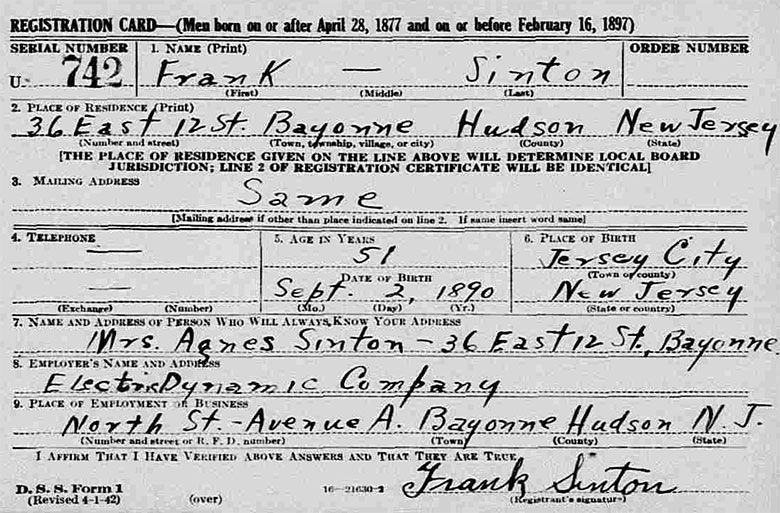 REGISTRATION CARD—(Men born on or after April 28, 1877 and on or before February 16, 1897)
SERIAL NUMBER 1. NAME (Print) ORDER NUMBER
U 742 Frank — Sinton
(First) (Middle) (Last)
2. PLACE OF RESIDENCE (Print)
36 East 12 St. Bayonne Hudson New Jersey
(Number and street) (Town, township, village, or city) (County) (State)
[THE PLACE OF RESIDENCE GIVEN ON THE LINE ABOVE WILL DETERMINE LOCAL BOARD
JURISDICTION; LINE 2 OF REGISTRATION CERTIFICATE WILL BE IDENTICAL]
3. MAILING ADDRESS
Same
[Mailing address if other than place indicated on line 2. If same insert word same]
4. TELEPHONE 5. AGE IN YEARS 6. PLACE OF BIRTH
— 51 Jersey City
DATE OF BIRTH (Town or county)
— Sept. 2, 1890 New Jersey
(Exchange) (Number) (Mo.) (Day) (Yr.) (State or country)
7. NAME AND ADDRESS OF PERSON WHO WILL ALWAYS KNOW YOUR ADDRESS
Mrs. Agnes Sinton - 36 East 12 St, Bayonne
8. EMPLOYER'S NAME AND ADDRESS
Electric Dynamic Company
9. PLACE OF EMPLOYMENT OR BUSINESS
North St. - Avenue A. Bayonne Hudson N.J.
(Number and street or R. F. D. number) (Town) (County) (State)
I AFFIRM THAT I HAVE VERIFIED ABOVE ANSWERS AND THAT THEY ARE TRUE
D. S. S. Form 1 Frank Sinton
(Revised 4-1-42) (over) 16-21630-2 (Registrant's signature)